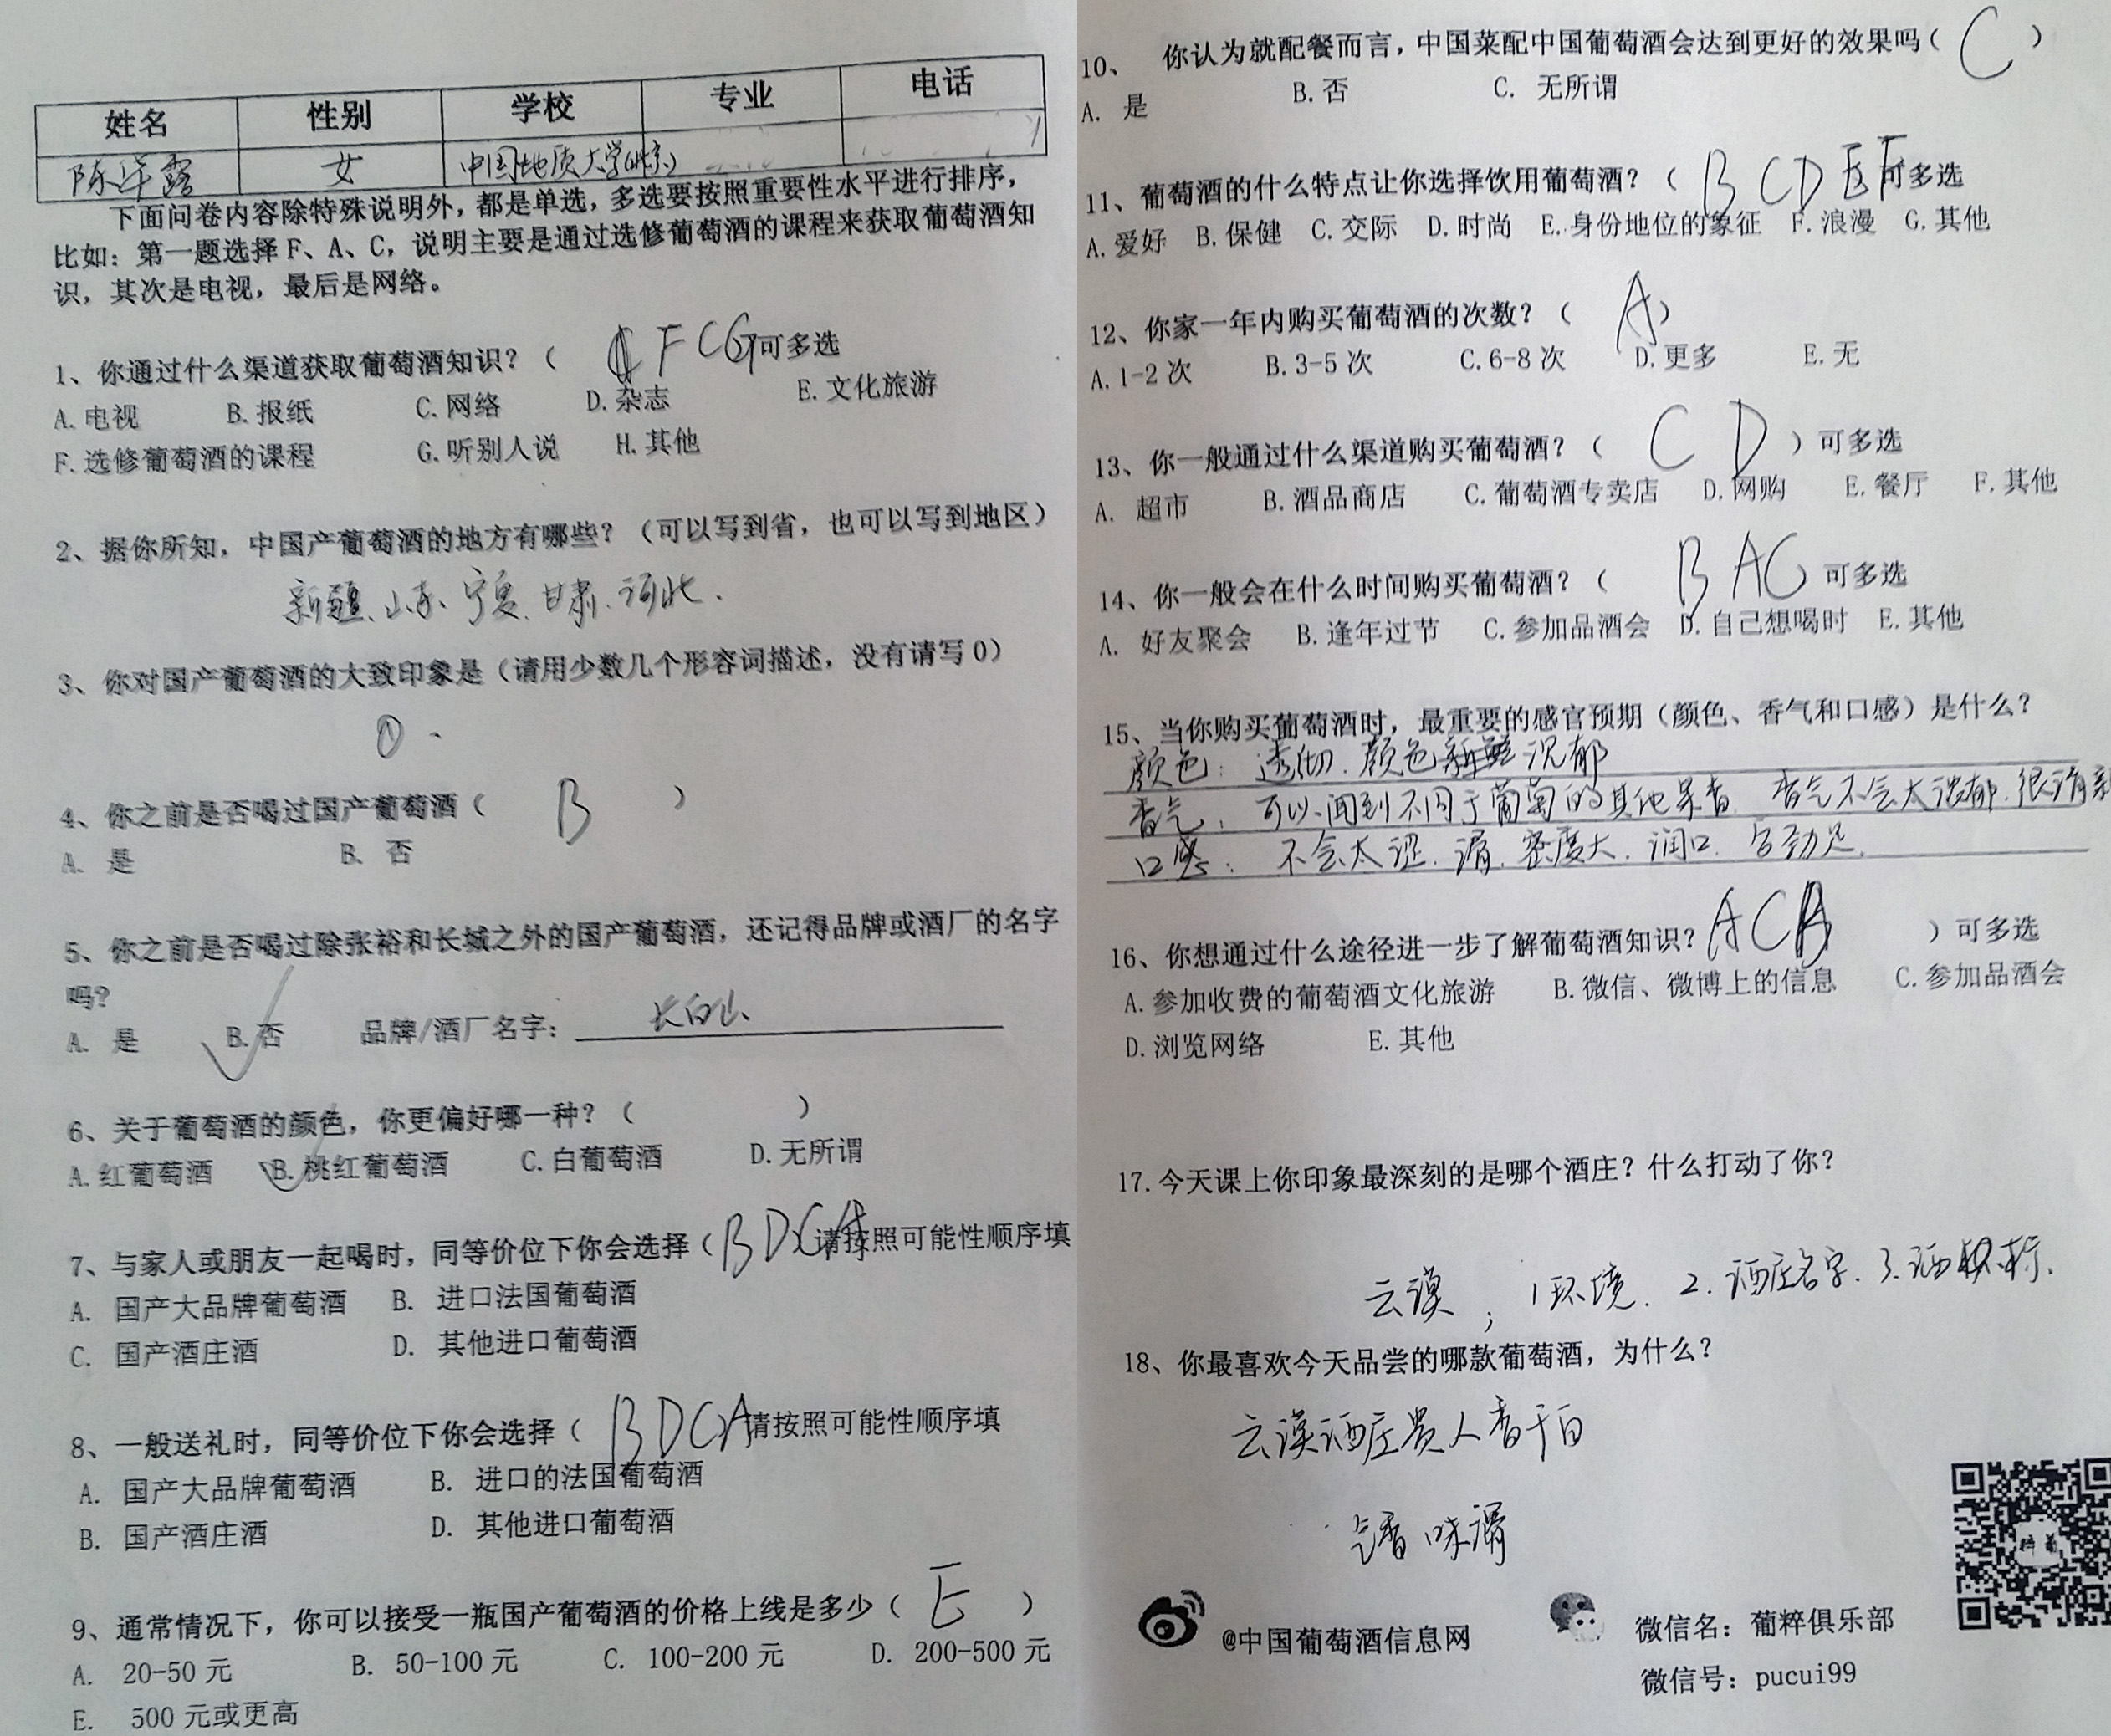 姓名 性别 学校 专业 电话
女 中国地质大学(北京)
下面问卷内容除特殊说明外，都是单选，多选要按照重要性水平进行排序，
比如：第一题选择 F、A、C，说明主要是通过选修葡萄酒的课程来获取葡萄酒知
识，其次是电视，最后是网络。
1、你通过什么渠道获取葡萄酒知识？（ F C G 可多选
A.电视 B.报纸 C.网络 D.杂志 E.文化旅游
F.选修葡萄酒的课程 G.听别人说 H.其他
2、据你所知，中国产葡萄酒的地方有哪些？（可以写到省，也可以写到地区）
新疆、山东、宁夏、甘肃、河北.
3、你对国产葡萄酒的大致印象是（请用少数几个形容词描述，没有请写 0）
4、你之前是否喝过国产葡萄酒（ B ）
A. 是 B. 否
5、你之前是否喝过除张裕和长城之外的国产葡萄酒，还记得品牌或酒厂的名字
吗？
A. 是 B.否 品牌/酒厂名字： 长白山
6、关于葡萄酒的颜色，你更偏好哪一种？（ ）
A.红葡萄酒 B.桃红葡萄酒 C.白葡萄酒 D.无所谓
7、与家人或朋友一起喝时，同等价位下你会选择（ B D C A 请按照可能性顺序填
A. 国产大品牌葡萄酒 B. 进口法国葡萄酒
C. 国产酒庄酒 D. 其他进口葡萄酒
8、一般送礼时，同等价位下你会选择（ B D C A 请按照可能性顺序填
A. 国产大品牌葡萄酒 B. 进口的法国葡萄酒
B. 国产酒庄酒 D. 其他进口葡萄酒
9、通常情况下，你可以接受一瓶国产葡萄酒的价格上线是多少（ E ）
A. 20-50 元 B. 50-100 元 C. 100-200 元 D. 200-500 元
E. 500 元或更高
10、 你认为就配餐而言，中国菜配中国葡萄酒会达到更好的效果吗（ C ）
A. 是 B.否 C. 无所谓
11、葡萄酒的什么特点让你选择饮用葡萄酒？（ B C D E F 可多选
A.爱好 B.保健 C.交际 D.时尚 E.身份地位的象征 F.浪漫 G.其他
12、你家一年内购买葡萄酒的次数？（ A ）
A.1-2 次 B.3-5 次 C.6-8 次 D.更多 E.无
13、你一般通过什么渠道购买葡萄酒？（ C D ）可多选
A. 超市 B.酒品商店 C.葡萄酒专卖店 D.网购 E.餐厅 F.其他
14、你一般会在什么时间购买葡萄酒？（ B A C 可多选
A. 好友聚会 B.逢年过节 C.参加品酒会 D.自己想喝时 E.其他
15、当你购买葡萄酒时，最重要的感官预期（颜色、香气和口感）是什么？
颜色：透彻.颜色新鲜沉郁
香气：可以闻到不同于葡萄的其他果香.香气不会太浓郁.很清新
口感：不会太涩.滑.密度大.润口.后劲足.
16、你想通过什么途径进一步了解葡萄酒知识？ A C B ）可多选
A.参加收费的葡萄酒文化旅游 B.微信、微博上的信息 C.参加品酒会
D.浏览网络 E.其他
17.今天课上你印象最深刻的是哪个酒庄？什么打动了你？
云漠；1环境.2.酒庄名字.3.酒标.
18、你最喜欢今天品尝的哪款葡萄酒，为什么？
云漠酒庄贵人香干白
香 味滑
@中国葡萄酒信息网
微信名：葡粹俱乐部
微信号：pucui99